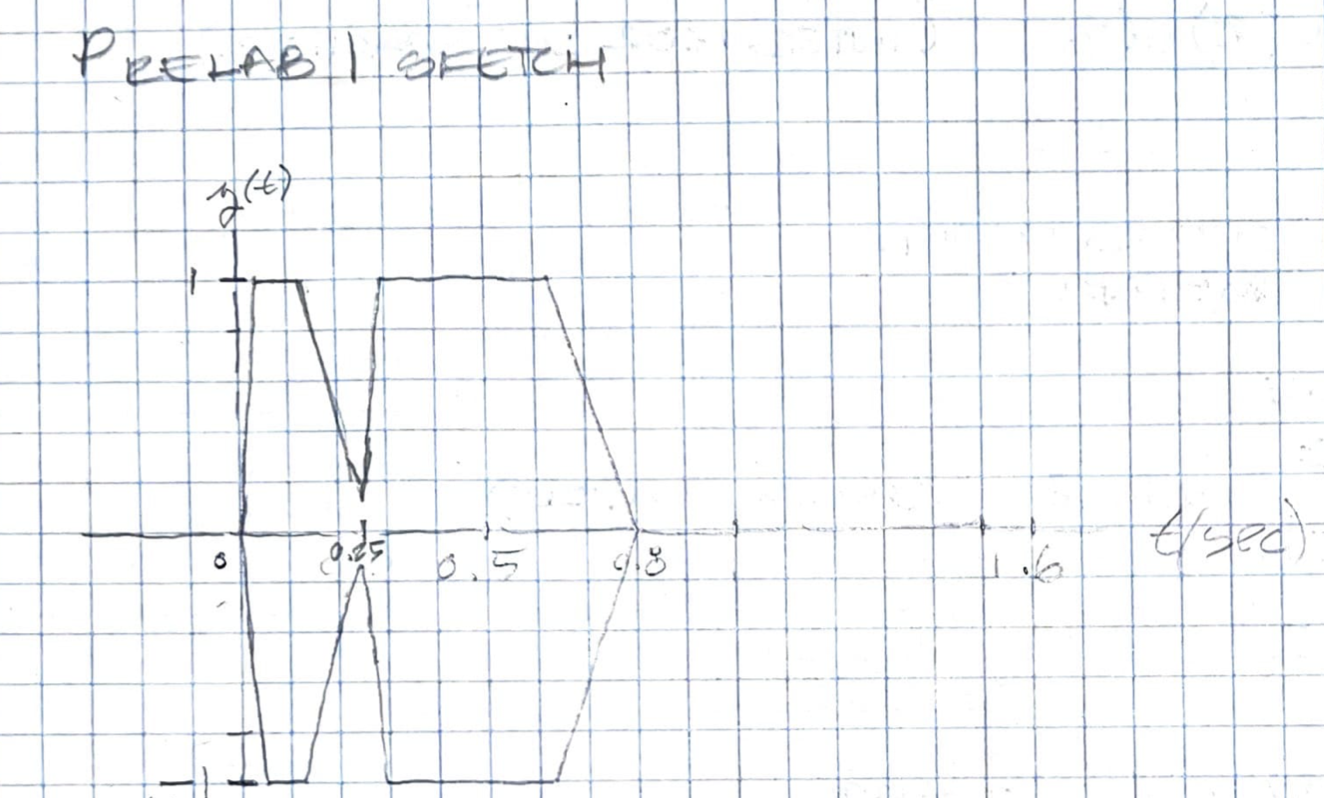 PRELAB 1 SKETCH
y(t)
1
0 0.25 0.5 0.8 1.6 t(sec)
-1